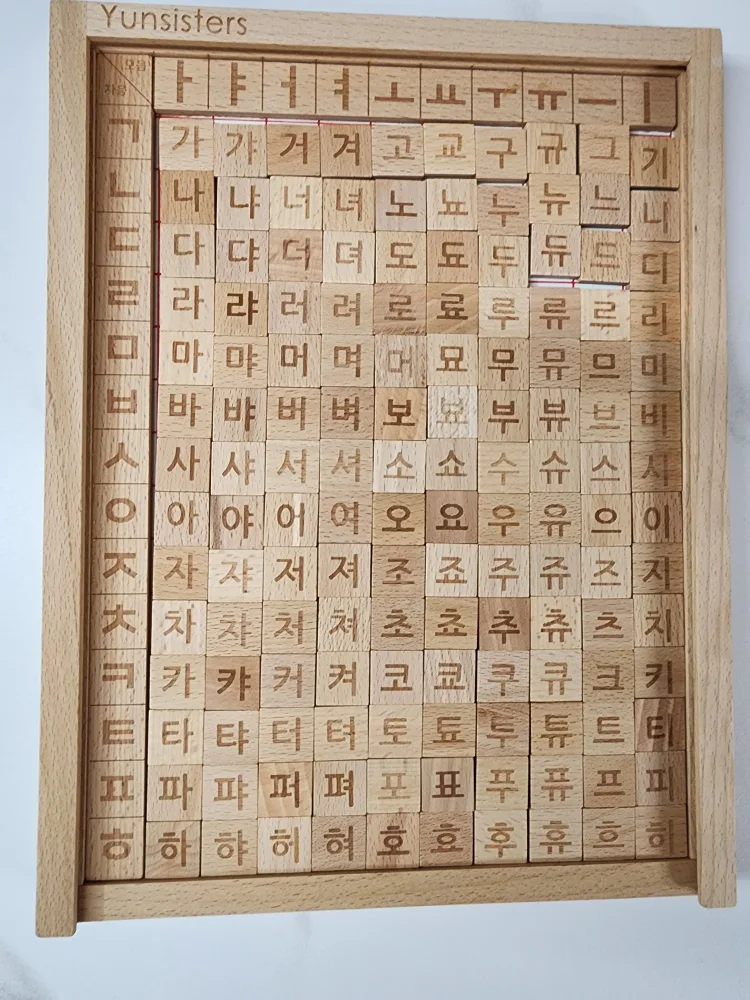 Yunsisters
모음
자음 ㅏ ㅑ ㅓ ㅕ ㅗ ㅛ ㅜ ㅠ ㅡ ㅣ
ㄱ 가 갸 거 겨 고 교 구 규 그 기
ㄴ 나 냐 너 녀 노 뇨 누 뉴 느 니
ㄷ 다 댜 더 뎌 도 됴 두 듀 드 디
ㄹ 라 랴 러 려 로 료 루 류 르 리
ㅁ 마 먀 머 며 머 묘 무 뮤 므 미
ㅂ 바 뱌 버 벼 보 뵤 부 뷰 브 비
ㅅ 사 샤 서 셔 소 쇼 수 슈 스 시
ㅇ 아 야 어 여 오 요 우 유 으 이
ㅈ 자 쟈 저 져 조 죠 주 쥬 즈 지
ㅊ 차 챠 처 쳐 초 쵸 추 츄 츠 치
ㅋ 카 캬 커 켜 코 쿄 쿠 큐 크 키
ㅌ 타 탸 터 텨 토 툐 투 튜 트 티
ㅍ 파 퍄 퍼 펴 포 표 푸 퓨 프 피
ㅎ 하 햐 허 혀 호 효 후 휴 흐 히